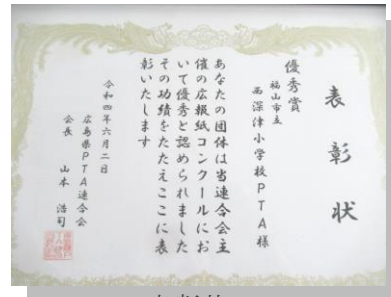 表彰状
優秀賞
福山市立
西深津小学校PTA様
あなたの団体は当連合会主
催の広報紙コンクールにお
いて優秀と認められました
その功績をたたえここに表
彰いたします
令和四年六月二日
広島県PTA連合会
会長 山本 浩司